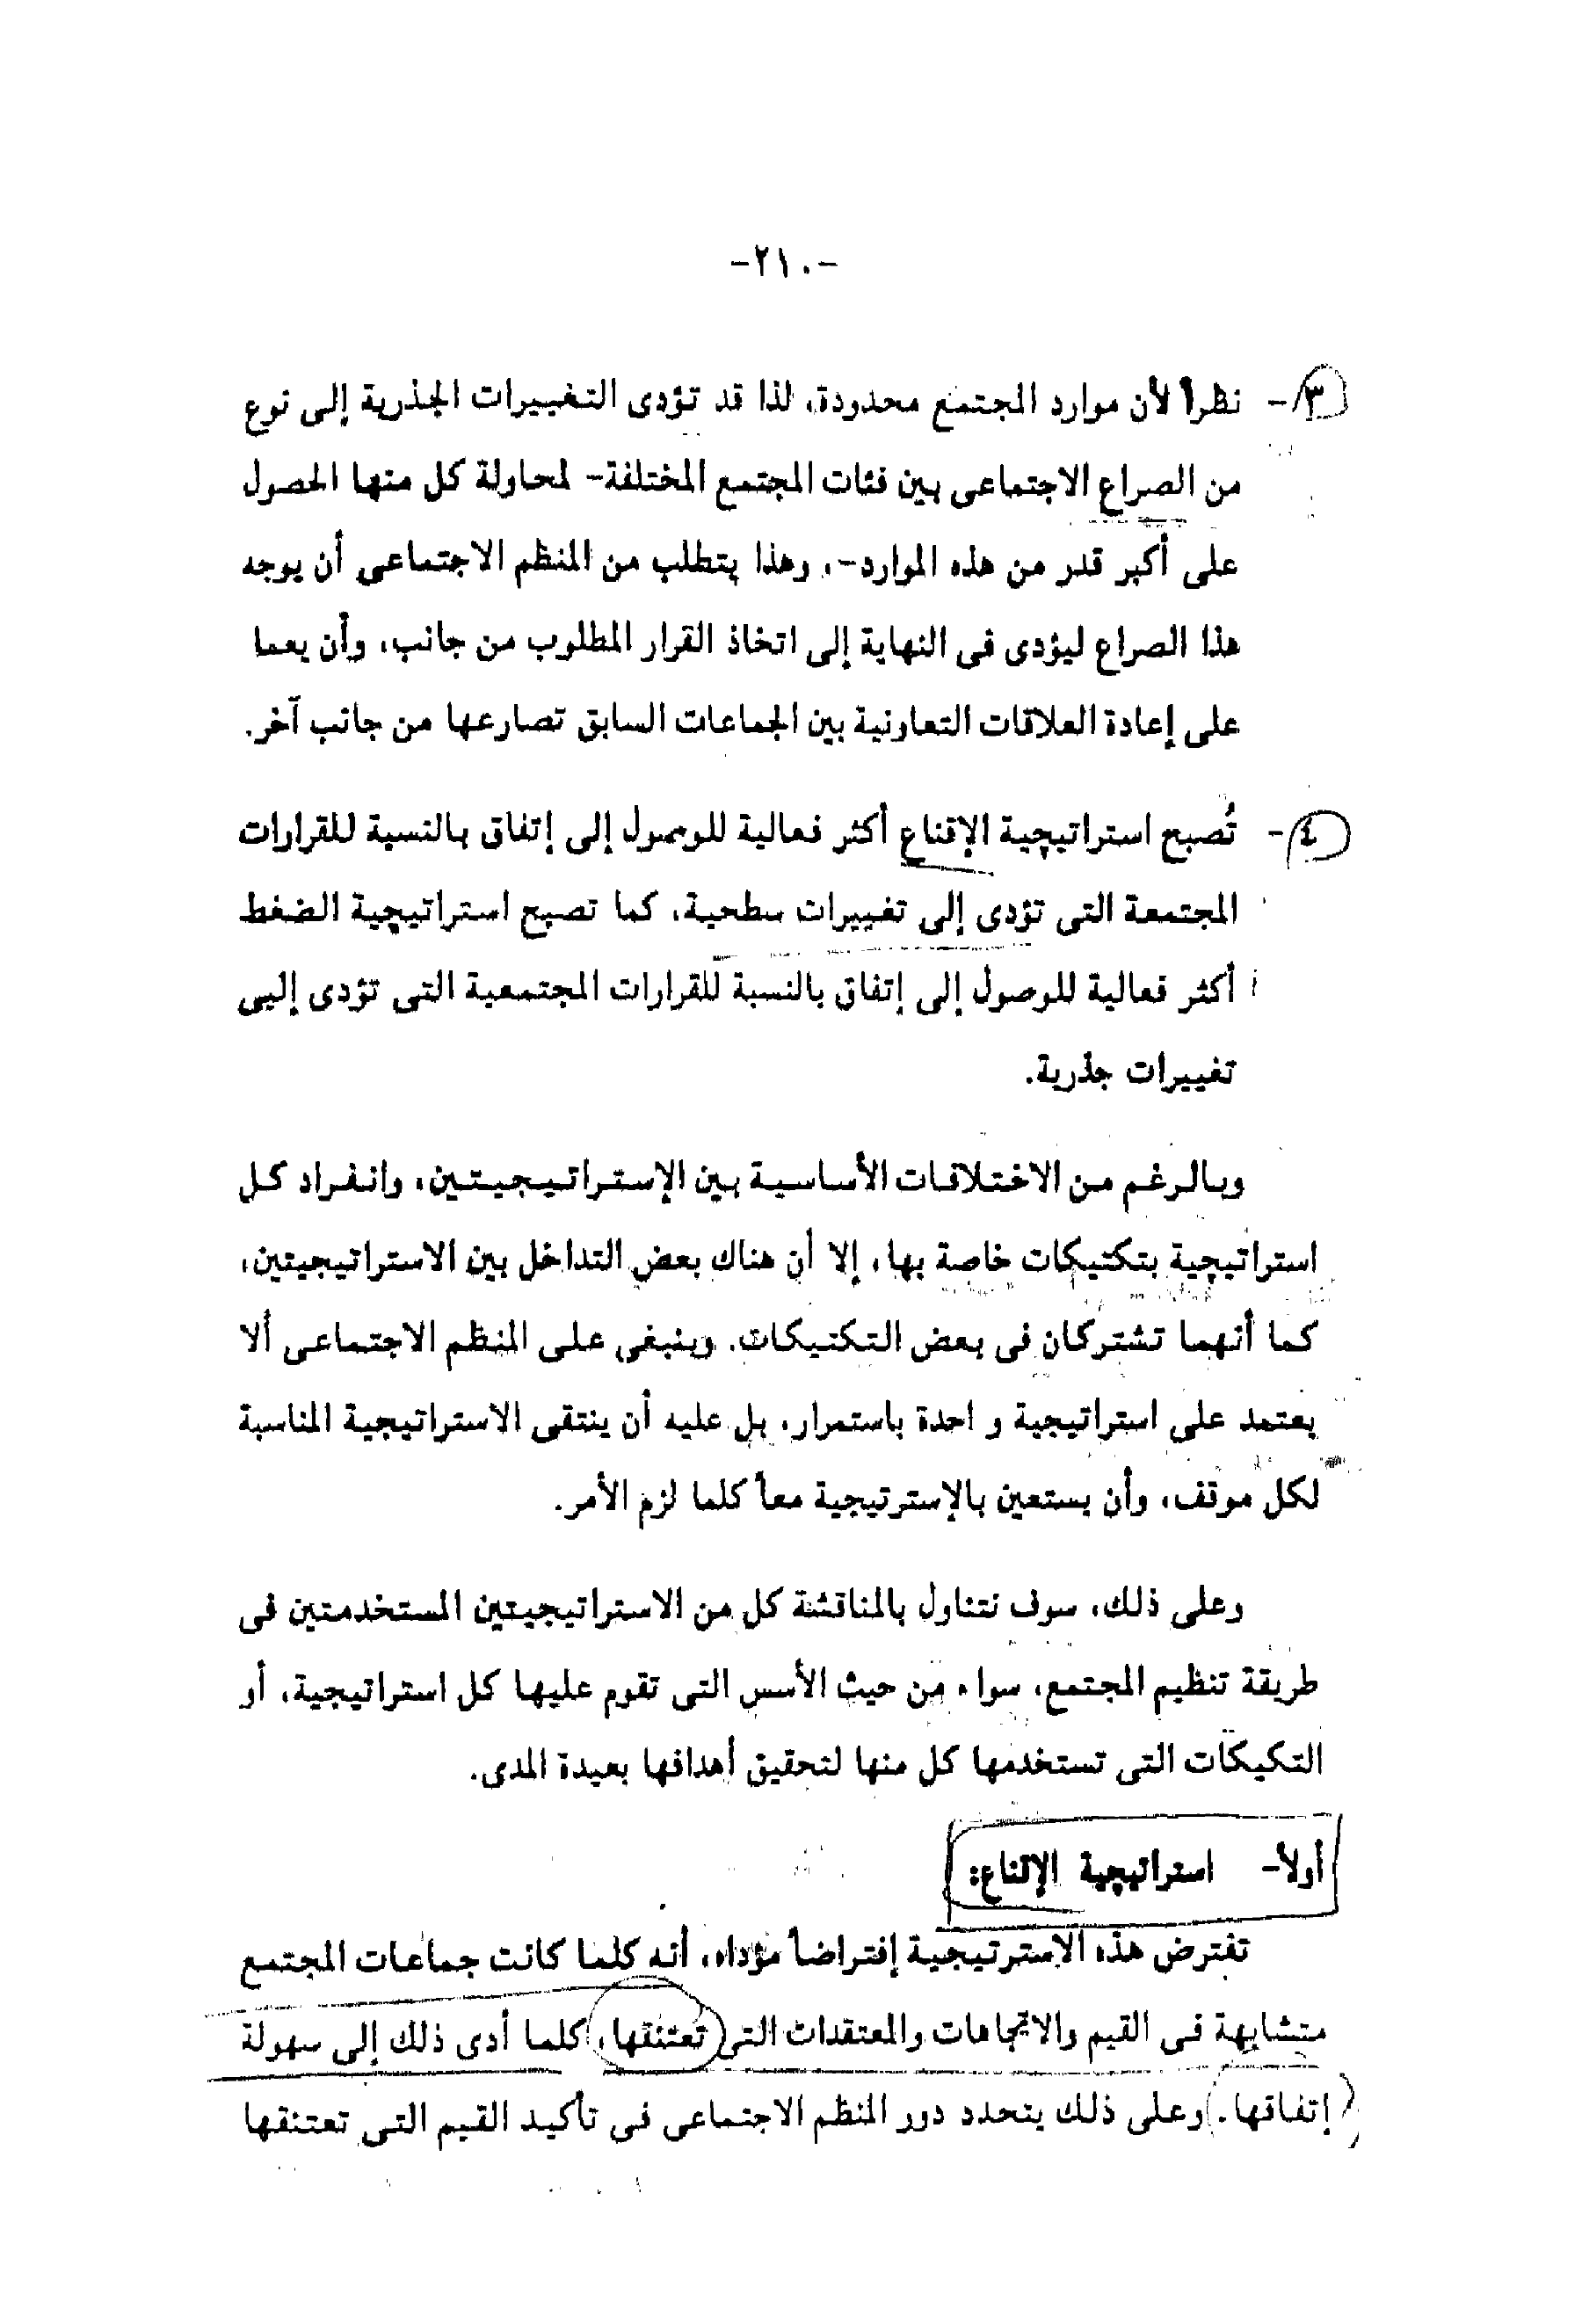 -٢١٠-
٣- نظراً لأن موارد المجتمع محدودة، لذا قد تؤدى التغييرات الجذرية إلى نوع
من الصراع الاجتماعى بين فئات المجتمع المختلفة- لمحاولة كل منها الحصول
على أكبر قدر من هذه الموارد-، وهذا يتطلب من المنظم الاجتماعى أن يوجه
هذا الصراع ليؤدى فى النهاية إلى اتخاذ القرار المطلوب من جانب، وأن يعما
على إعادة العلاقات التعاونية بين الجماعات السابق تصارعها من جانب آخر.
٤- تُصبح استراتيچية الإقناع أكثر فعالية للوصول إلى إتفاق بالنسبة للقرارات
المجتمعة التى تؤدى إلى تغييرات سطحية، كما تصبح استراتيچية الضغط
أكثر فعالية للوصول إلى إتفاق بالنسبة للقرارات المجتمعية التى تؤدى إليى
تغييرات جذرية.
وبالرغم من الاختلافات الأساسية بين الإستراتيجيتين، وانفراد كل
استراتيچية بتكتيكات خاصة بها، إلا أن هناك بعض التداخل بين الاستراتيجيتين،
كما أنهما تشتركان فى بعض التكتيكات. وينبغى على المنظم الاجتماعى ألا
يعتمد على استراتيجية و احدة باستمرار، بل عليه أن ينتقى الاستراتيجية المناسبة
لكل موقف، وأن يستعين بالإسترتيجية معاً كلما لزم الأمر.
وعلى ذلك، سوف نتناول بالمناقشة كل من الاستراتيجيتين المستخدمتين فى
طريقة تنظيم المجتمع، سواء من حيث الأسس التى تقوم عليها كل استراتيجية، أو
التكيكات التى تستخدمها كل منها لتحقيق أهدافها بعيدة المدى.
أولاً- استراتيچية الإقناع:
تفترض هذه الاسترتيجية إفتراضاً مؤداه، أنه كلما كانت جماعات المجتمع
متشابهة فى القيم والاتجاهات والمعتقدات التى تعتنقها، كلما أدى ذلك إلى سهولة
إتفاقها. وعلى ذلك يتحدد دور المنظم الاجتماعى فى تأكيد القيم التى تعتنقها